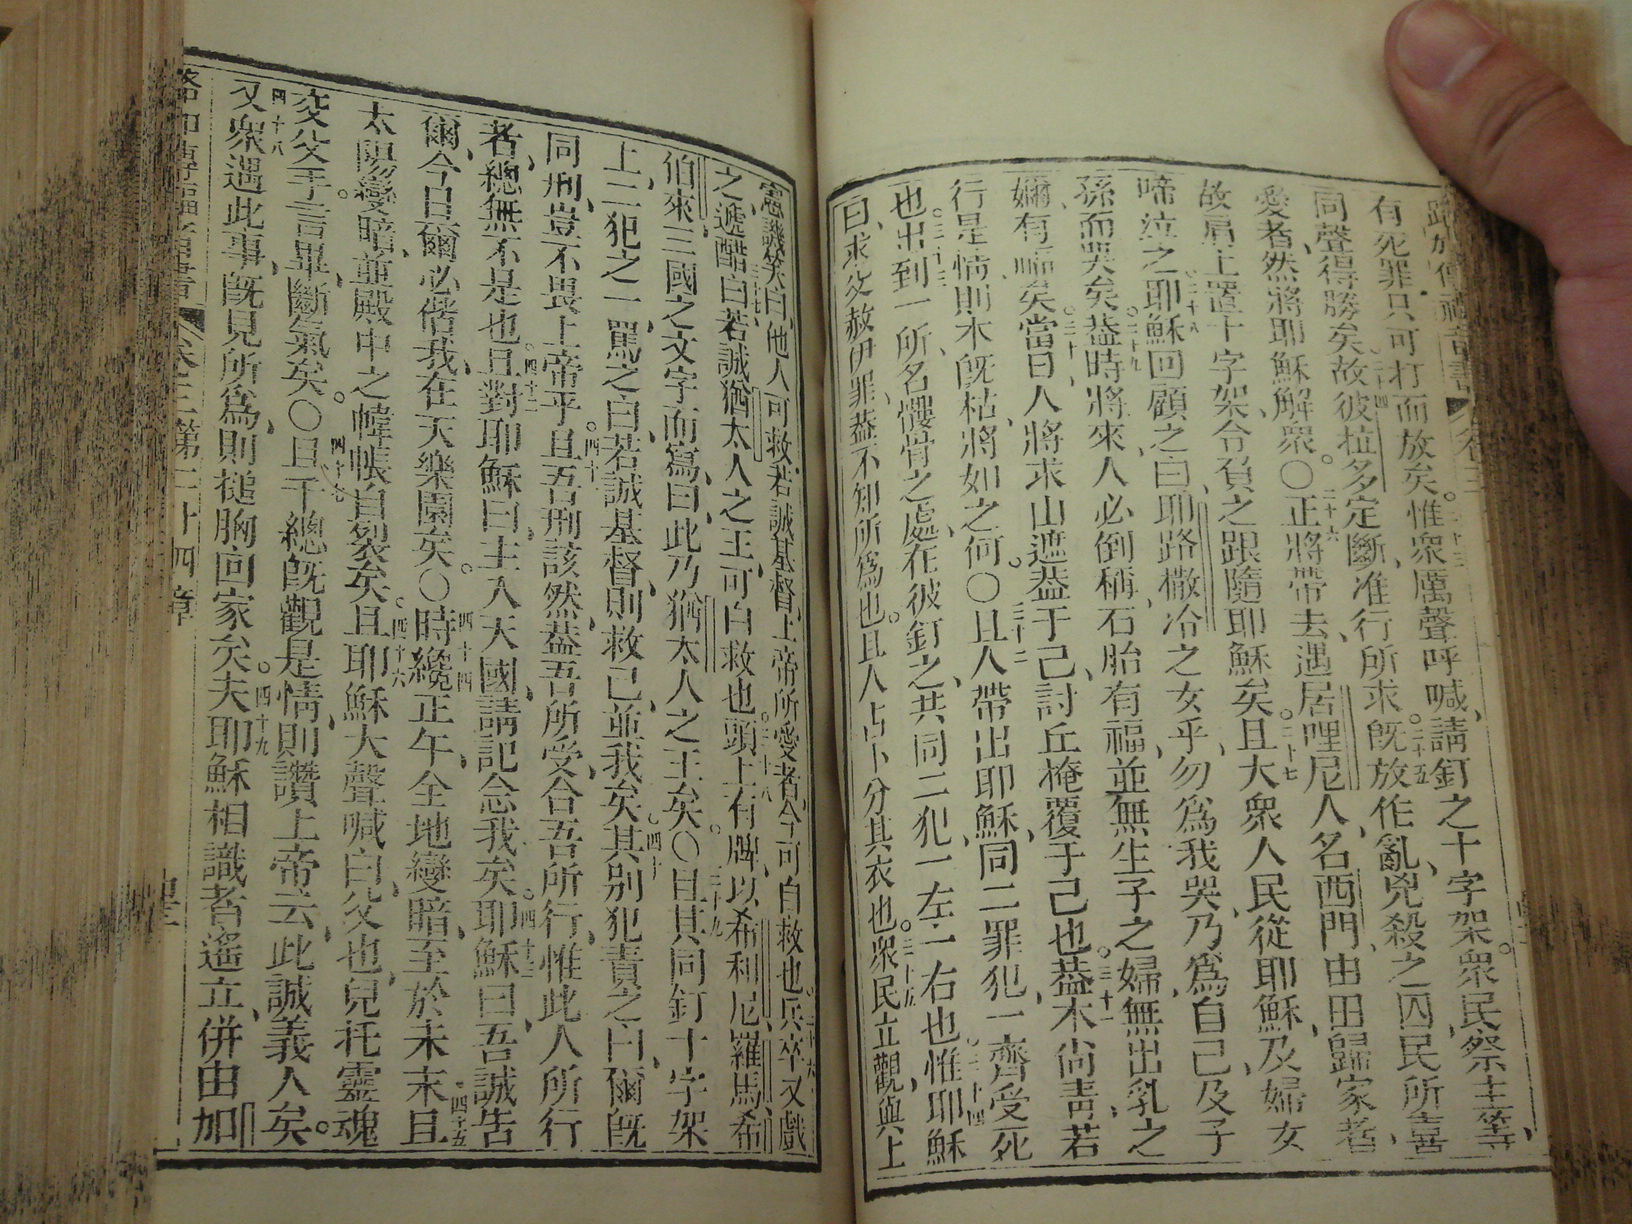 路加傳福音書 卷三
有死罪只可打而放矣。二十三惟眾厲聲呼喊、請釘之十字架。眾民祭主等、
同聲得勝矣、二十四故彼拉多定斷、准行所求、二十五旣放作亂兇殺之囚、民所喜
愛者、然將耶穌解眾。○二十六正將帶去、遇居哩尼人、名西門、由田歸家者、
故肩上置十字架、令負之跟隨耶穌矣。二十七且大眾人民從耶穌、及婦女
啼泣之、二十八耶穌回顧之曰、耶路撒冷之女乎、勿爲我哭、乃爲自己、及子
孫而哭矣。二十九蓋時將來、人必倒稱、石胎有福、並無生子之婦、無出乳之
嬭有哺矣。三十當日人將求山遮蓋于己、討丘掩覆于己也。三十一蓋木尚靑、若
行是情、則木旣枯、將如之何。○三十二且人帶出耶穌、同二罪犯、一齊受死
也。三十三出到一所、名髑骨之處、在彼釘之、共同二犯、一左一右也。三十四惟耶穌
曰、求父赦伊罪、蓋不知所爲也。且人占卜分其衣也。三十五眾民立觀、與上
憲譏笑曰、他人可救、若誠基督、上帝所愛者、今可自救也。三十六兵卒又戲
之、遞醋曰、若誠猶太人之王、可自救也。三十八頭上有牌、以希利尼、羅馬、希
伯來三國之文字而寫、曰、此乃猶太人之王矣。○三十九且其同釘十字架
上、二犯之一罵之曰、若誠基督、則救己並我矣。四十其別犯責之曰、爾旣
同刑、豈不畏上帝乎。四十一且吾刑該然、蓋吾所受、合吾所行、惟此人所行
者、總無不是也。四十二且對耶穌曰、主入天國、請記念我矣。四十三耶穌曰、吾誠告
爾、今日爾必偕我、在天樂園矣。○四十四時纔正午、全地變暗、至於未末、四十五且
太陽變暗、並殿中之幃帳自裂矣。四十六且耶穌大聲喊曰、父也、兒托靈魂
父手、言畢斷氣矣。○四十七且千總旣觀是情、則讚上帝云、此誠義人矣。
四十八又眾遇此事、旣見所爲、則搥胸回家矣。四十九夫耶穌相識者遙立、併由加
路加傳福音書 卷三 第二十四章